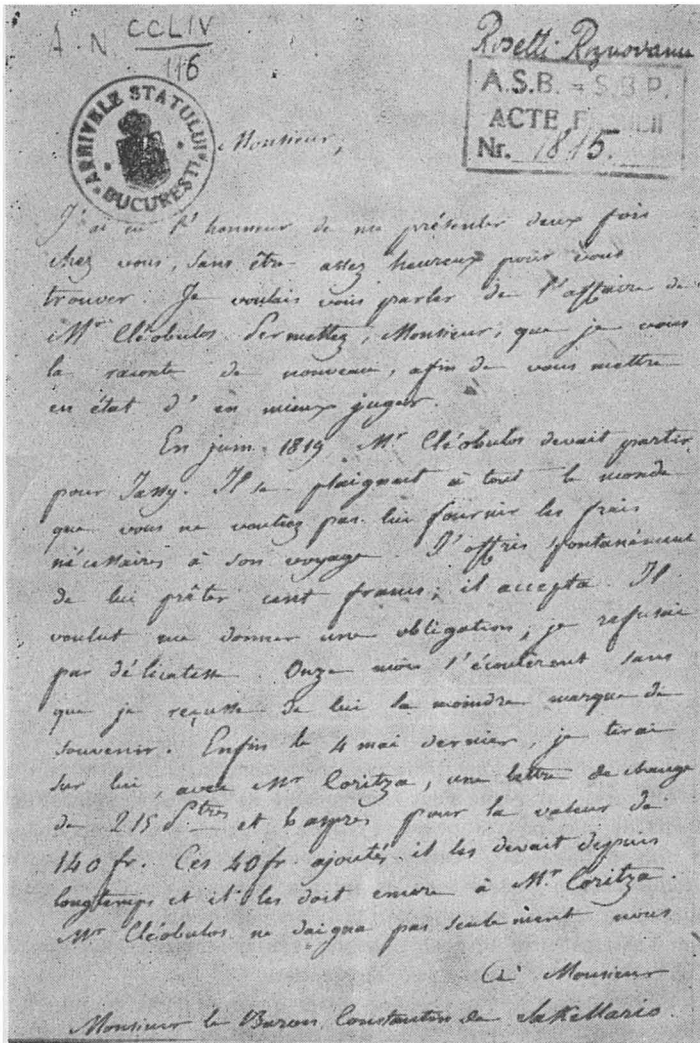 A. N. CCLIV
116
Rosetti Roznovanu
A.S.B. = S.B.P.
ACTE F
Nr. 1815.
ARHIVELE STATULUI
BUCUREȘTI
Monsieur,
J'ai eu l'honneur de me présenter deux fois
chez vous, sans être assez heureux pour vous
trouver. Je voulais vous parler de l'affaire de
Mr Cléobulos. Permettez, Monsieur, que je vous
la raconte de nouveau, afin de vous mettre
en état d'en mieux juger.
En juin 1819 Mr Cléobulos devait partir
pour Jassy. Il se plaignait à tout le monde
que vous ne vouliez pas lui fournir les frais
nécessaires à son voyage. J'offris spontanément
de lui prêter cent francs; il accepta. Il
voulut me donner une obligation; je refusai
par délicatesse. Onze mois s'écoulèrent sans
que je reçusse de lui la moindre marque de
souvenir. Enfin le 4 mai dernier, je tirai
sur lui, avec Mr Coritza, une lettre de change
de 215 Ptres et 6 aspres pour la valeur de
140 fr. Ces 40 fr. ajoutés il les devait depuis
longtemps et il les doit encore à Mr. Coritza.
Mr Cléobulos ne daigna pas seulement nous
A Monsieur
Monsieur le Baron Constantin de Sakellario